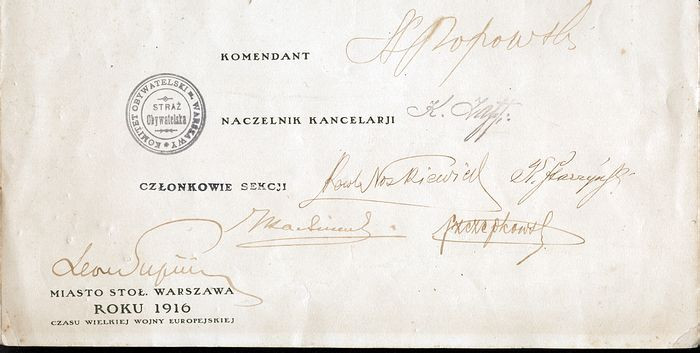 KOMENDANT Popowski
KOMITET OBYWATELSKI M. WARSZAWY
STRAŻ
Obywatelska
NACZELNIK KANCELARJI K.
CZŁONKOWIE SEKCJI Noskiewicz
Szczepkowski
Leon
MIASTO STOŁ. WARSZAWA
ROKU 1916
CZASU WIELKIEJ WOJNY EUROPEJSKIEJ